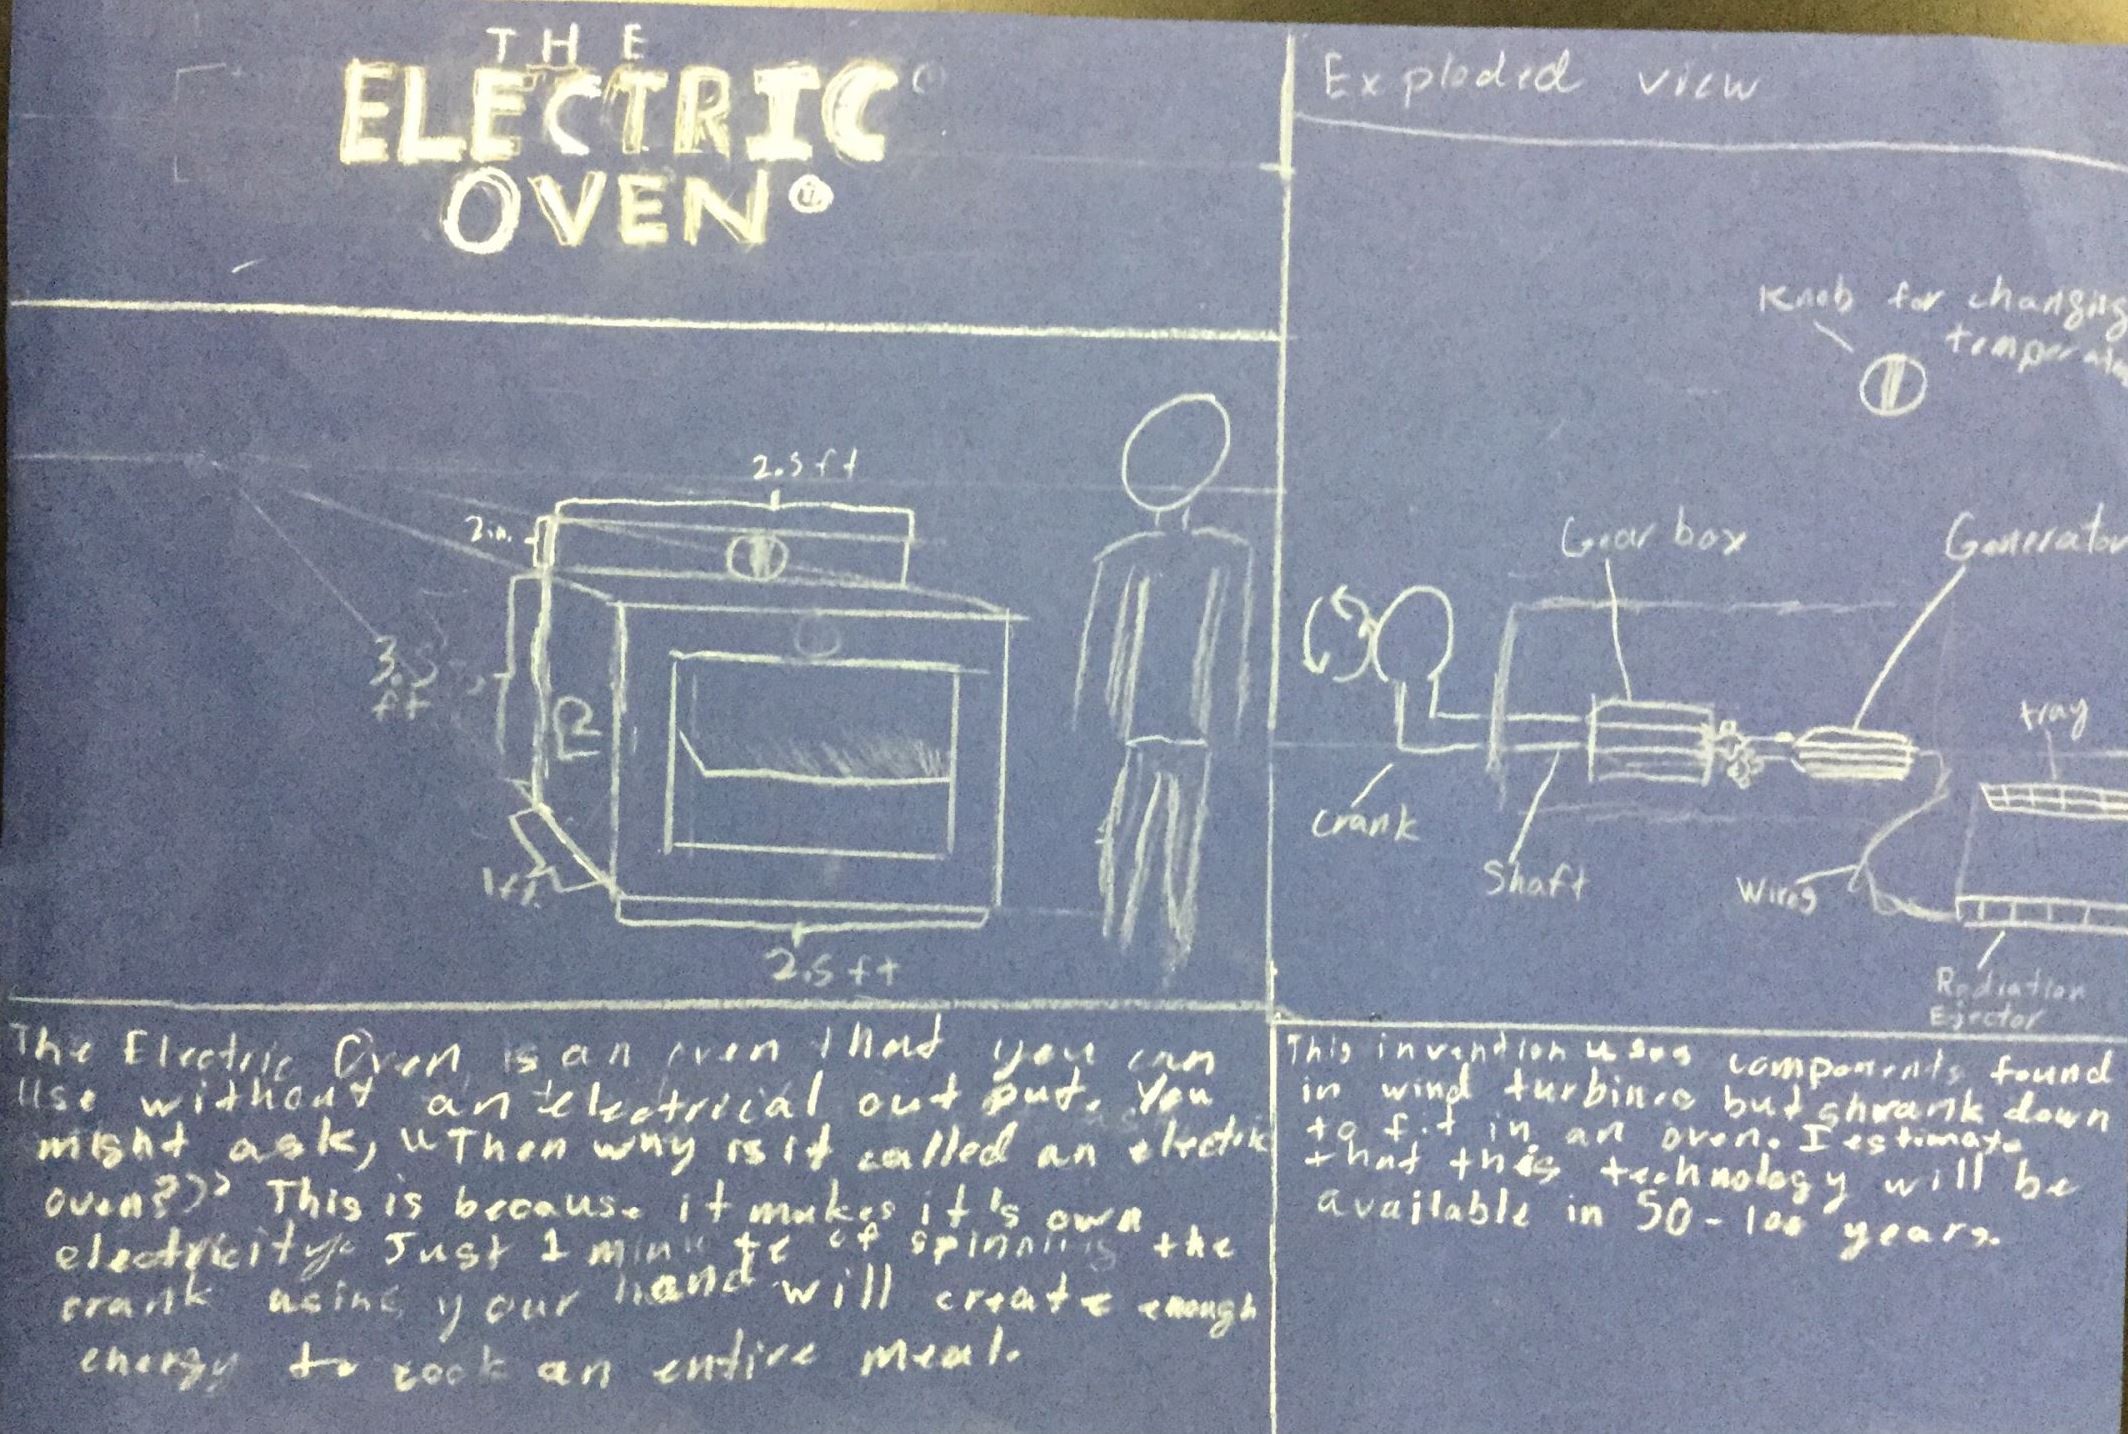 THE
ELECTRIC
OVEN®
2.5 ft
2in.
3.5
ft
1ft
2.5 ft
The Electric Oven is an oven that you can
use without an electrical out put. You
might ask, "Then why is it called an electric
oven?" This is because it makes it's own
electricity. Just 1 minute of spinning the
crank using your hand will create enough
energy to cook an entire meal.
Exploded view
Knob for changing
Gear box
Generator
tray
crank
Shaft
Wires
Radiation
Ejector
This invention uses components found
in wind turbines but shrank down
to fit in an oven. I estimate
that this technology will be
available in 50-100 years.